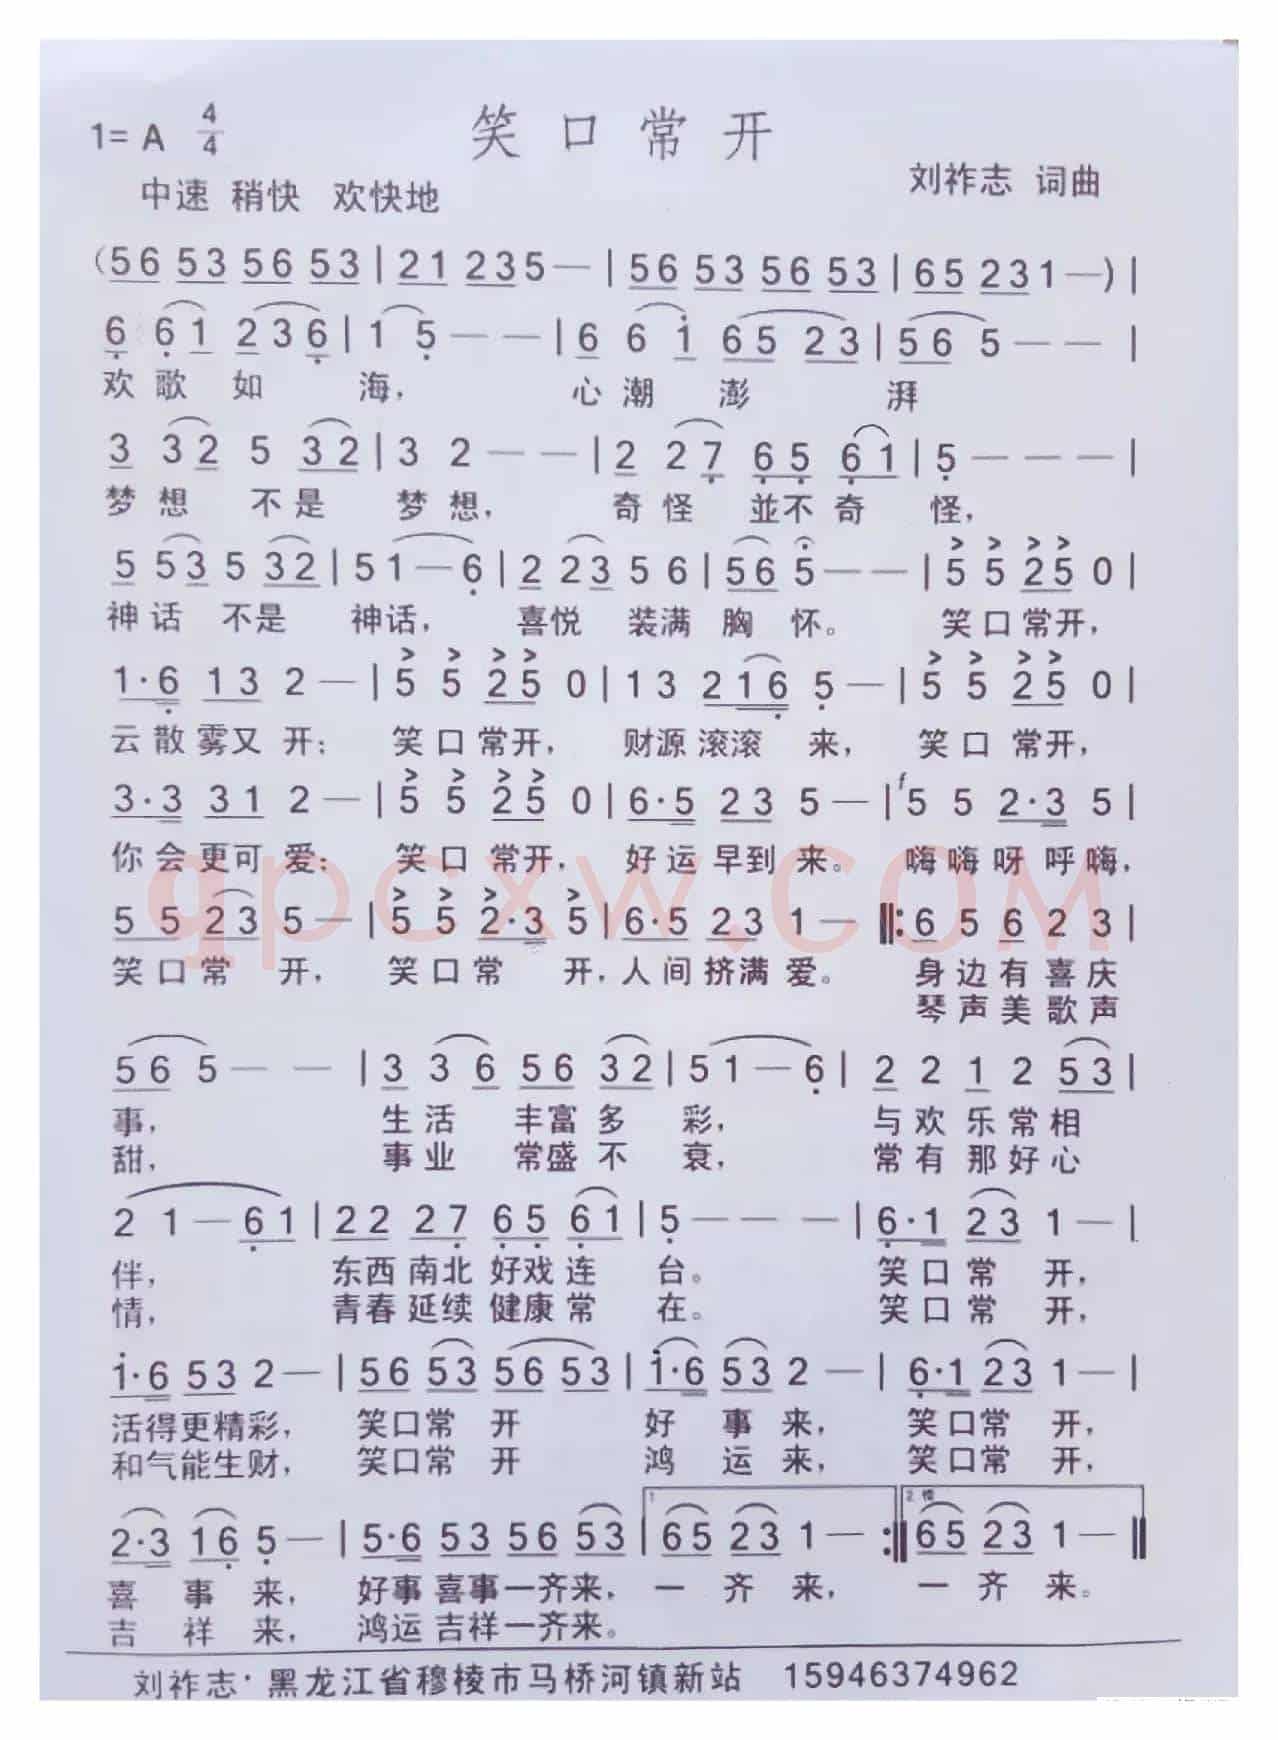 笑口常开
1= A 4/4
中速 稍快 欢快地
刘祚志 词曲
(56 53 56 53 | 21 235 — | 56 53 56 53 | 65 231 — ) |
6 61 236 | 1 5 — — | 6 6 1 65 23 | 56 5 — — |
欢歌如海, 心潮澎湃
3 32 5 32 | 3 2 — — | 2 27 65 61 | 5 — — — |
梦想不是梦想, 奇怪並不奇怪,
5 53 5 32 | 51 — 6 | 2 23 5 6 | 56 5 — — | 5 5 25 0 |
神话不是神话, 喜悦装满胸怀。 笑口常开,
1·6 13 2 — | 5 5 25 0 | 13 216 5 — | 5 5 25 0 |
云散雾又开; 笑口常开, 财源滚滚来, 笑口常开,
3·3 31 2 — | 5 5 25 0 | 6·5 23 5 — | f 5 5 2·3 5 |
你会更可爱; 笑口常开, 好运早到来。 嗨嗨呀呼嗨,
5 5 23 5 — | 5 5 2·3 5 | 6·5 23 1 — ‖: 6 5 6 2 3 |
笑口常开, 笑口常开, 人间挤满爱。 身边有喜庆
琴声美歌声
56 5 — — | 3 3 6 56 32 | 51 — 6 | 2 2 1 2 53 |
事, 生活丰富多彩, 与欢乐常相
甜, 事业常盛不衰, 常有那好心
2 1 — 61 | 22 27 65 61 | 5 — — — | 6·1 23 1 — |
伴, 东西南北好戏连台。 笑口常开,
情, 青春延续健康常在。 笑口常开,
1·6 53 2 — | 56 53 56 53 | 1·6 53 2 — | 6·1 23 1 — |
活得更精彩, 笑口常开 好事来, 笑口常开,
和气能生财, 笑口常开 鸿运来, 笑口常开,
2·3 16 5 — | 5·6 53 56 53 | 1 65 23 1 — :‖ 2. 65 23 1 — ‖
喜事来, 好事喜事一齐来, 一齐来, 一齐来。
吉祥来, 鸿运吉祥一齐来。
刘祚志·黑龙江省穆棱市马桥河镇新站 15946374962
qpcxw.com